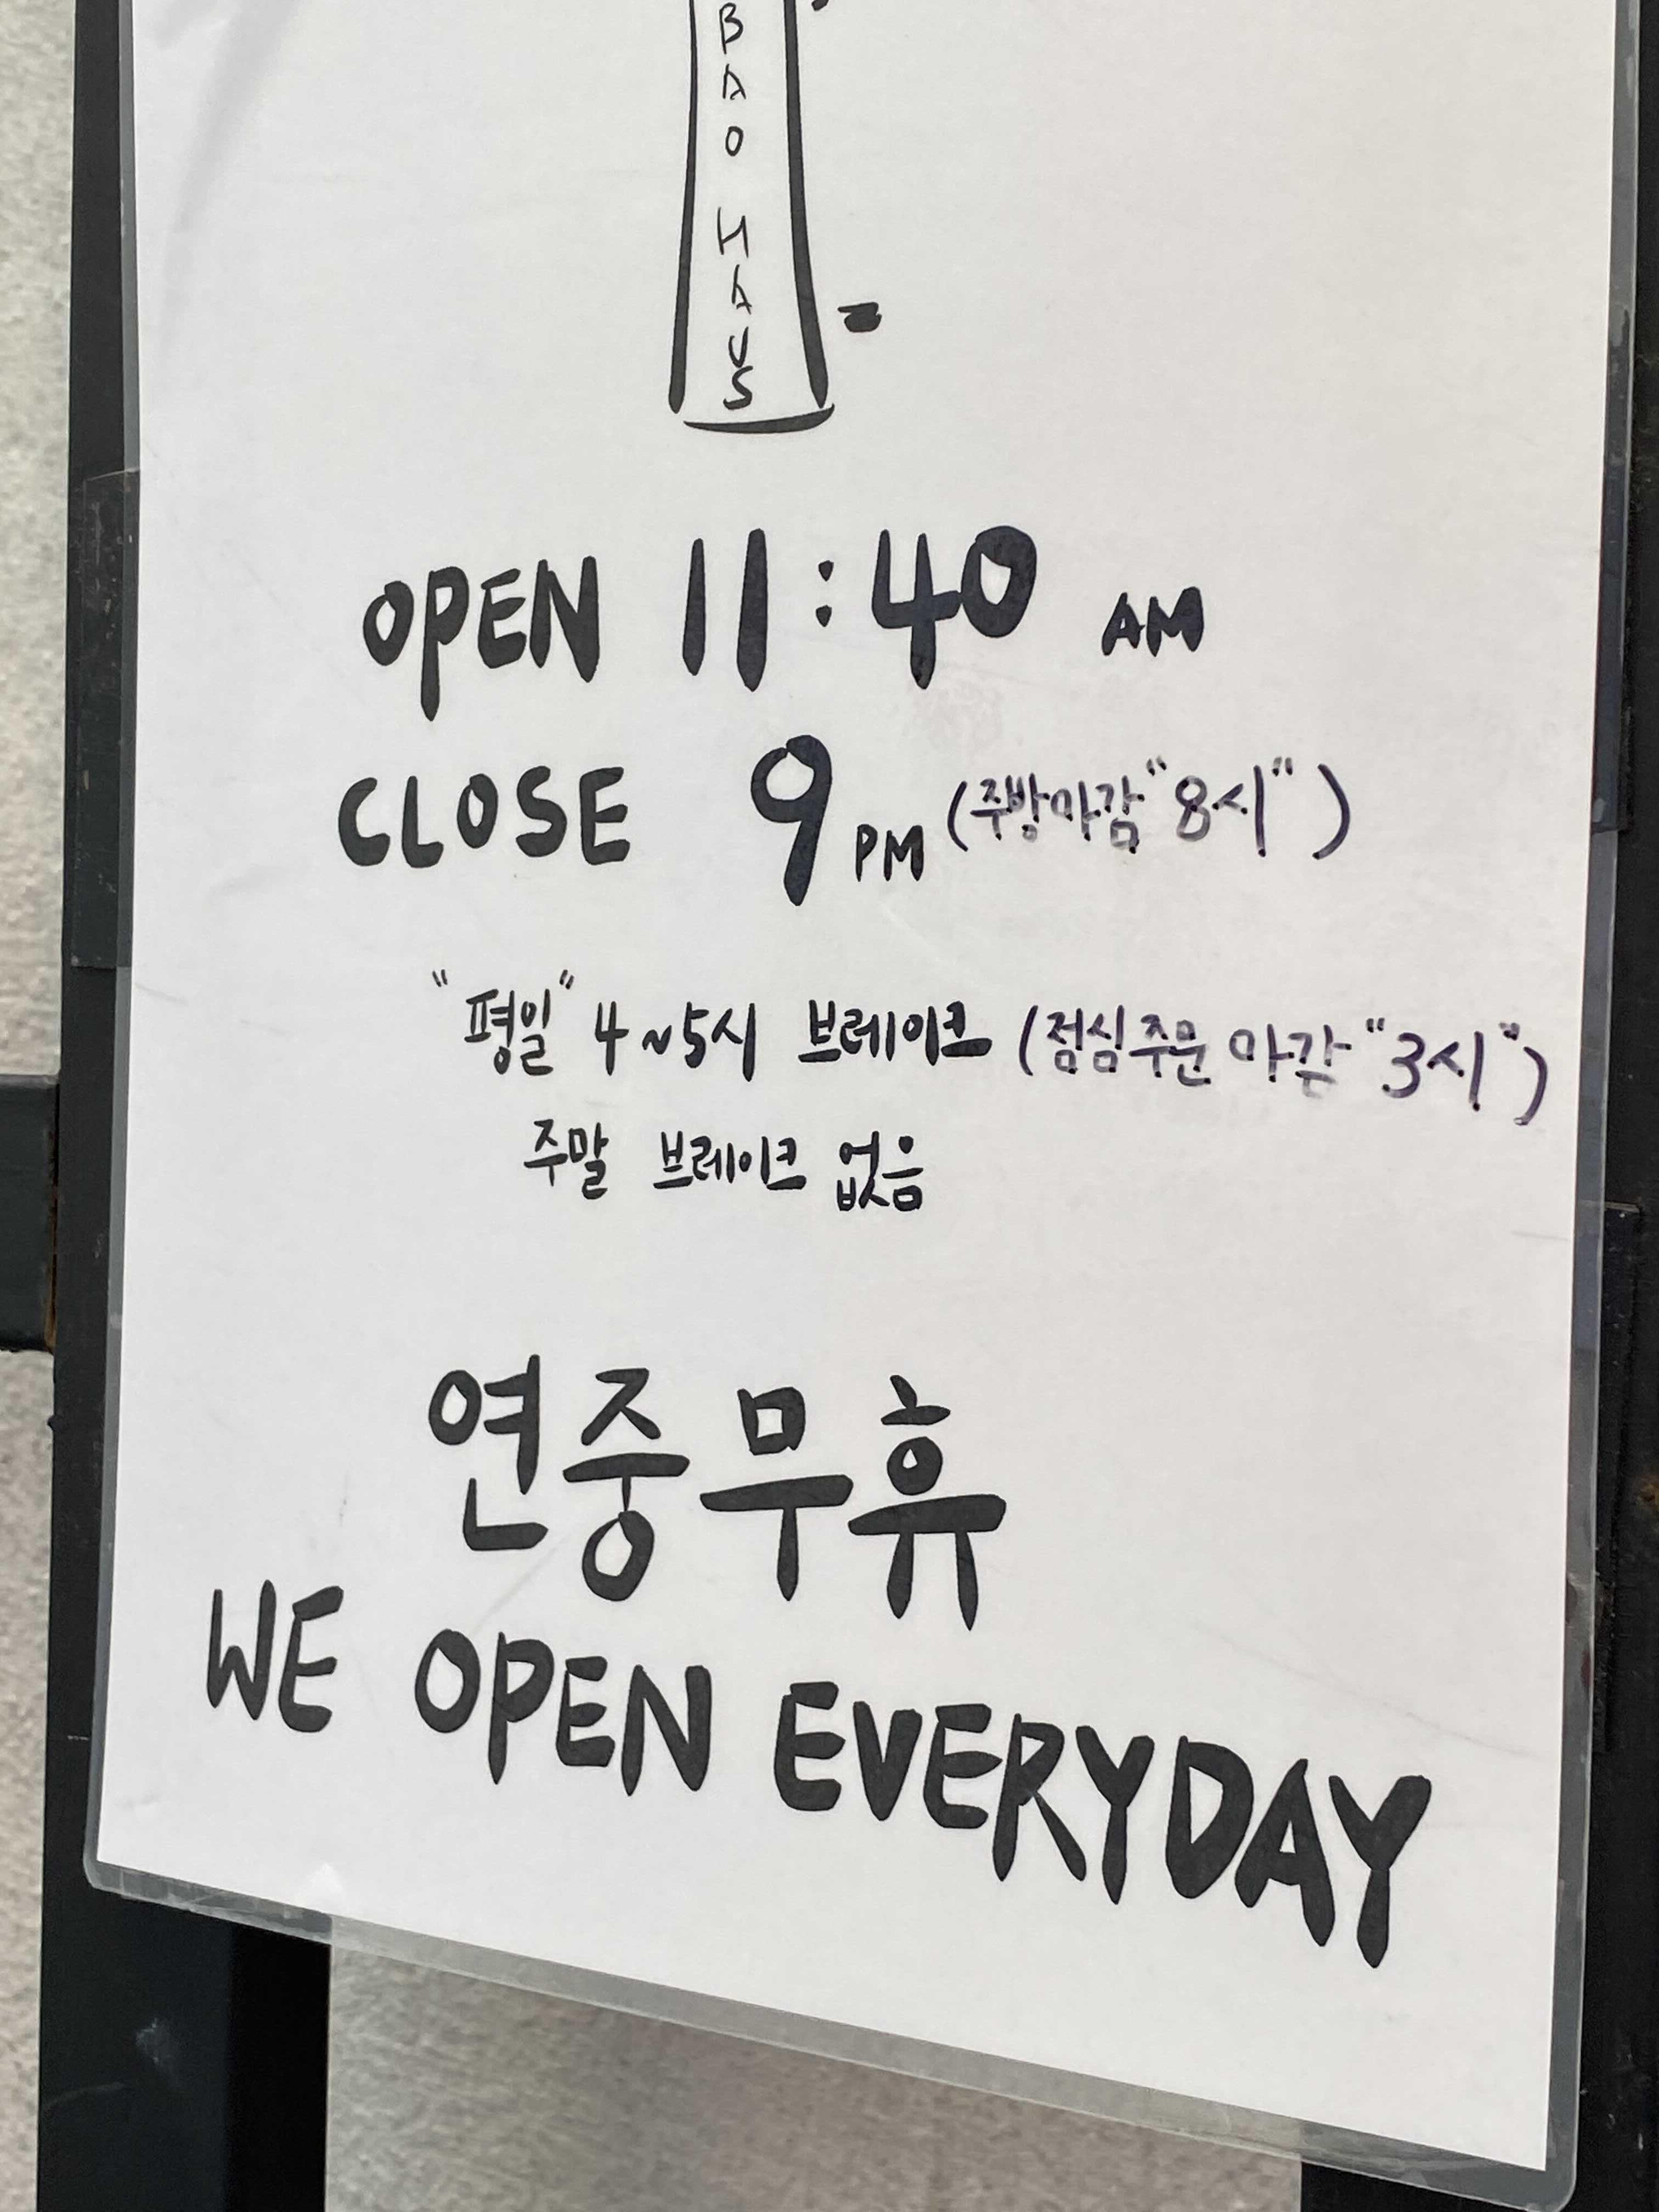 BAO HAUS
OPEN 11:40 AM
CLOSE 9 PM (주방마감 "8시")
"평일" 4~5시 브레이크 (점심주문 마감 "3시")
주말 브레이크 없음
연중무휴
WE OPEN EVERYDAY